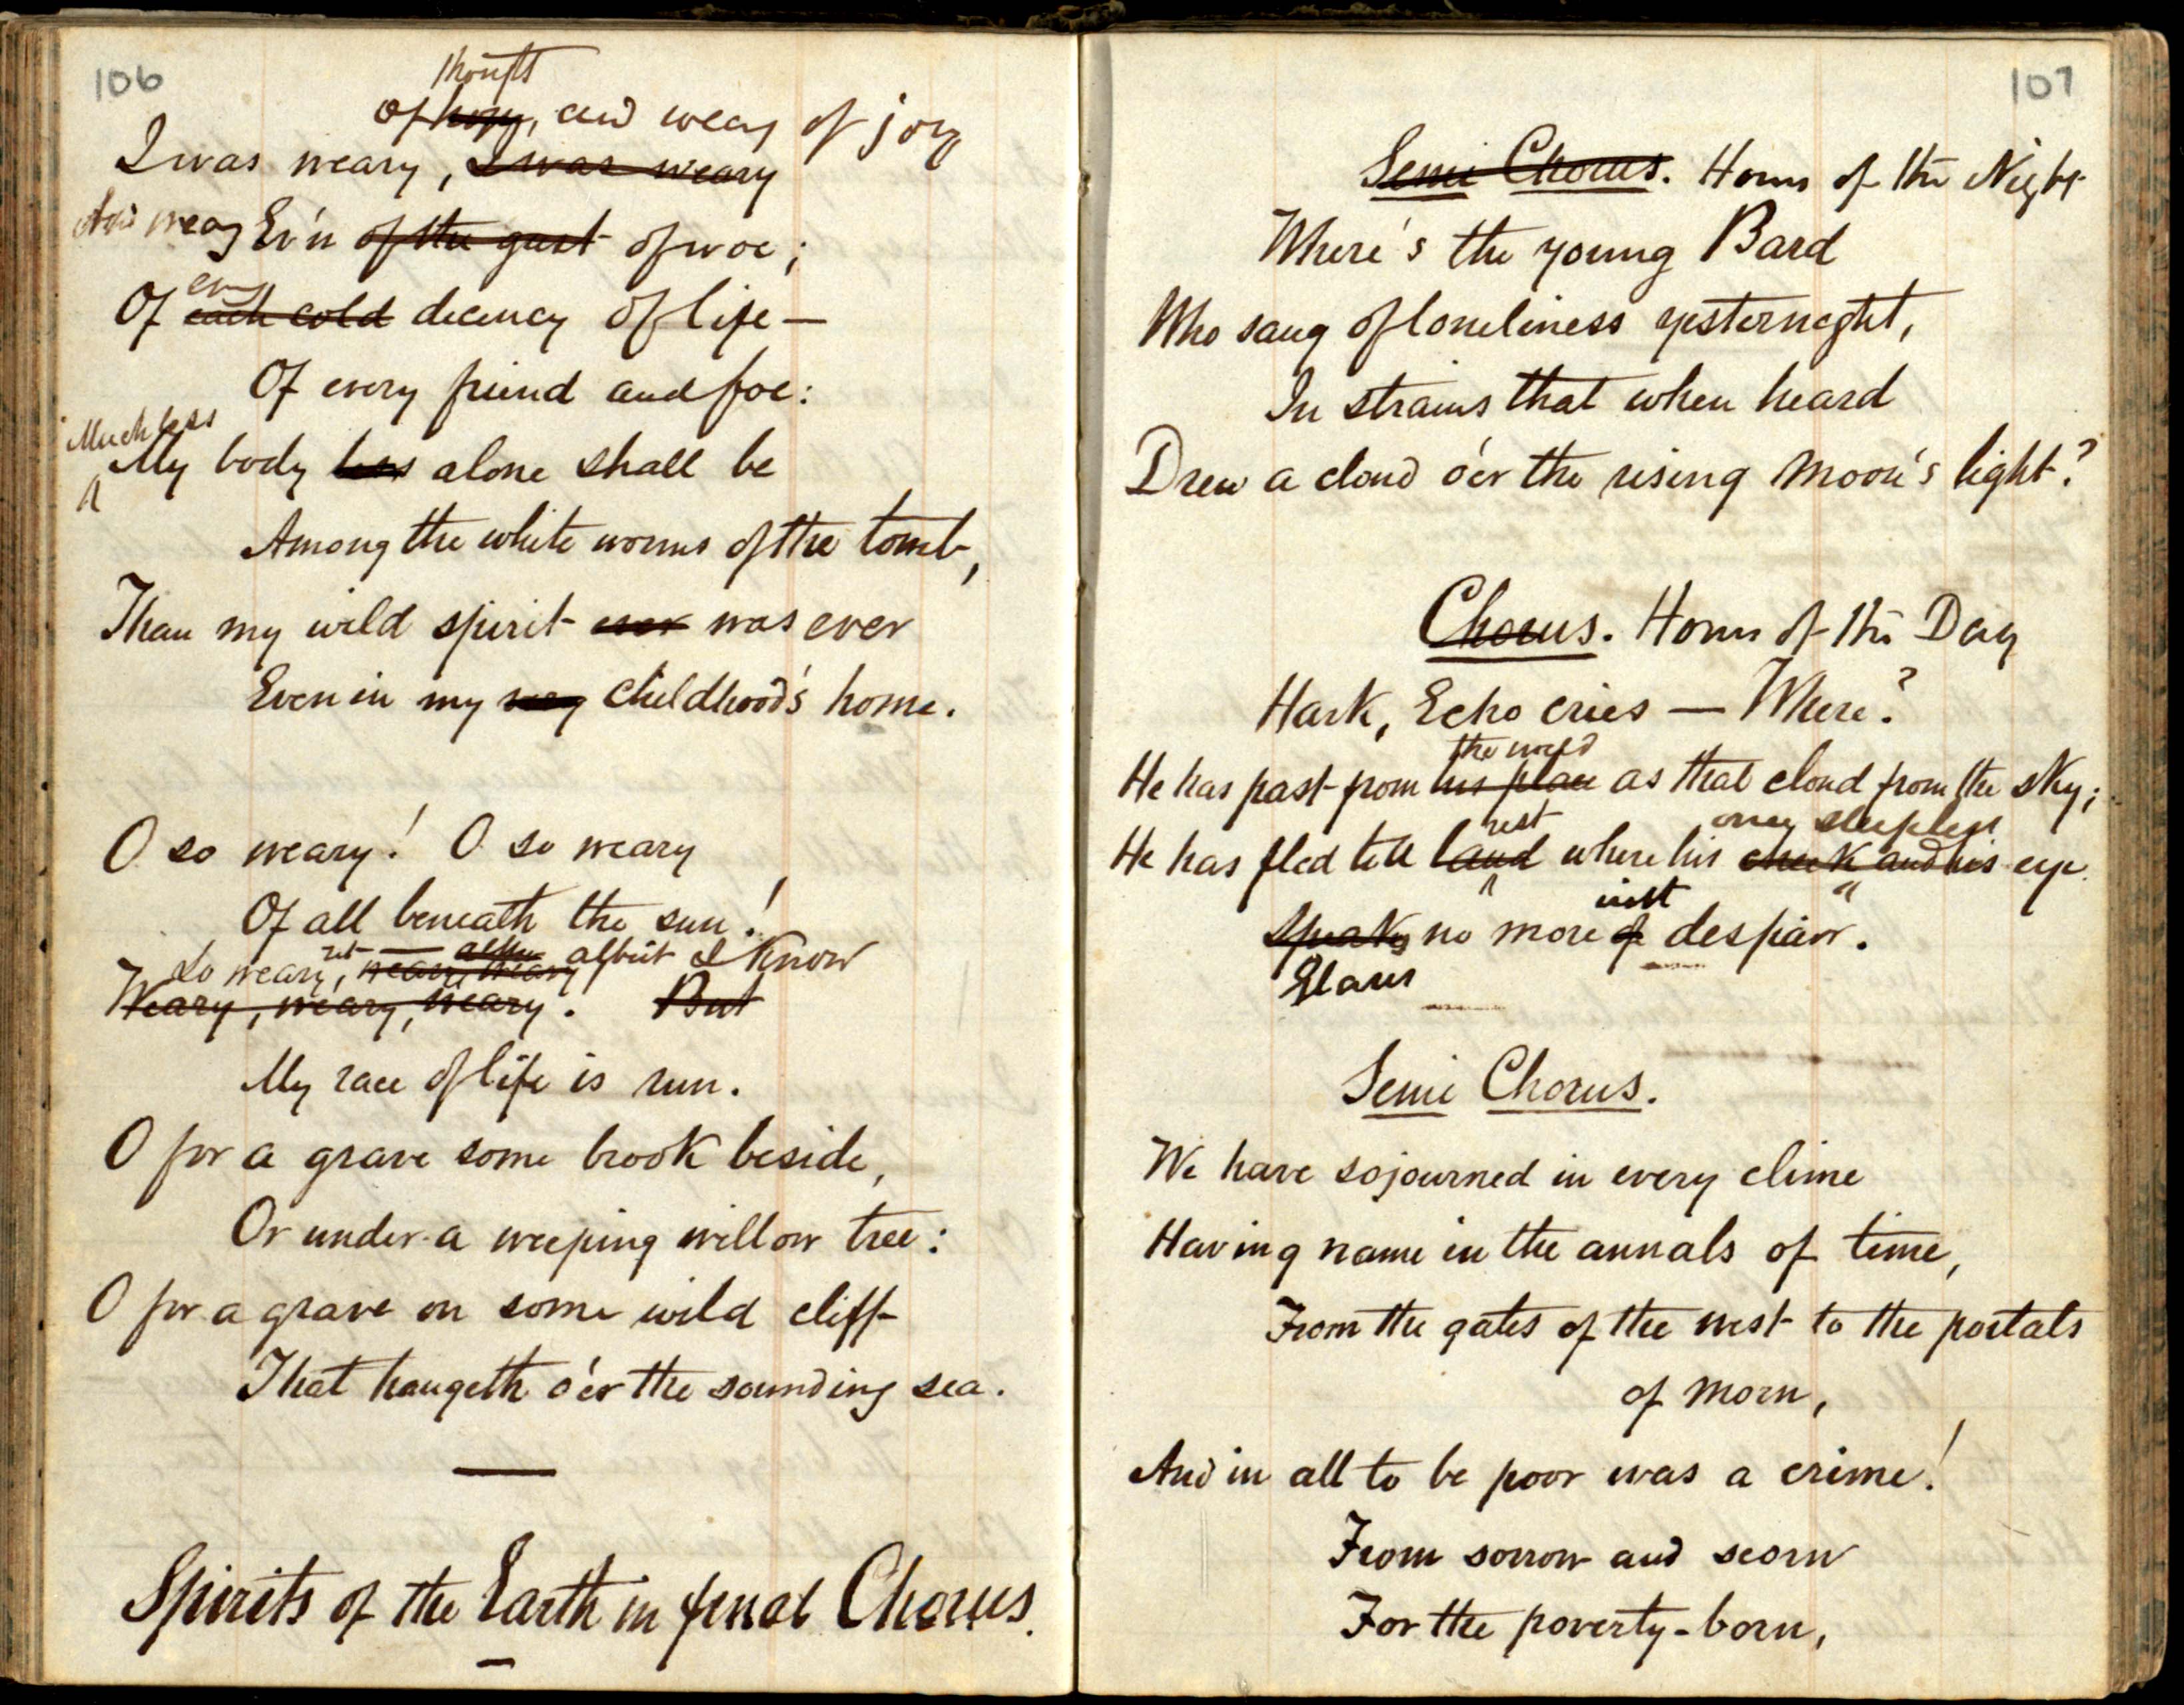 106
thoughts
of hope, and weary of joy
I was weary, I was weary
And weary Ev'n of the gust of woe;
every
Of each cold decency of life—
Of every friend and foe:
Much less
My body less alone shall be
Among the white worms of the tomb,
Than my wild spirit ever was ever
Even in my very childhood's home.
O so weary! O so weary
Of all beneath the sun!
So weary, weary, weary albeit I know
Weary, weary, weary. But
My race of life is run.
O for a grave some brook beside,
Or under a weeping willow tree:
O for a grave on some wild cliff
That hangeth o'er the sounding sea.
Spirits of the Earth in final Chorus.
107
Semi Chorus. Hours of the Night
Where's the young Bard
Who sang of loneliness yesternight,
In strains that when heard
Drew a cloud o'er the rising moon's light?
Chorus. Hours of the Day
Hark, Echo cries — Where?
the world
He has past from his place as that cloud from the sky;
rest sleepless
He has fled to a land where his cheek and his eye
with
Speaks no more of despair.
Glares
Semi Chorus.
We have sojourned in every clime
Having name in the annals of time,
From the gates of the west to the portals
of morn,
And in all to be poor was a crime!
From sorrow and scorn
For the poverty-born,